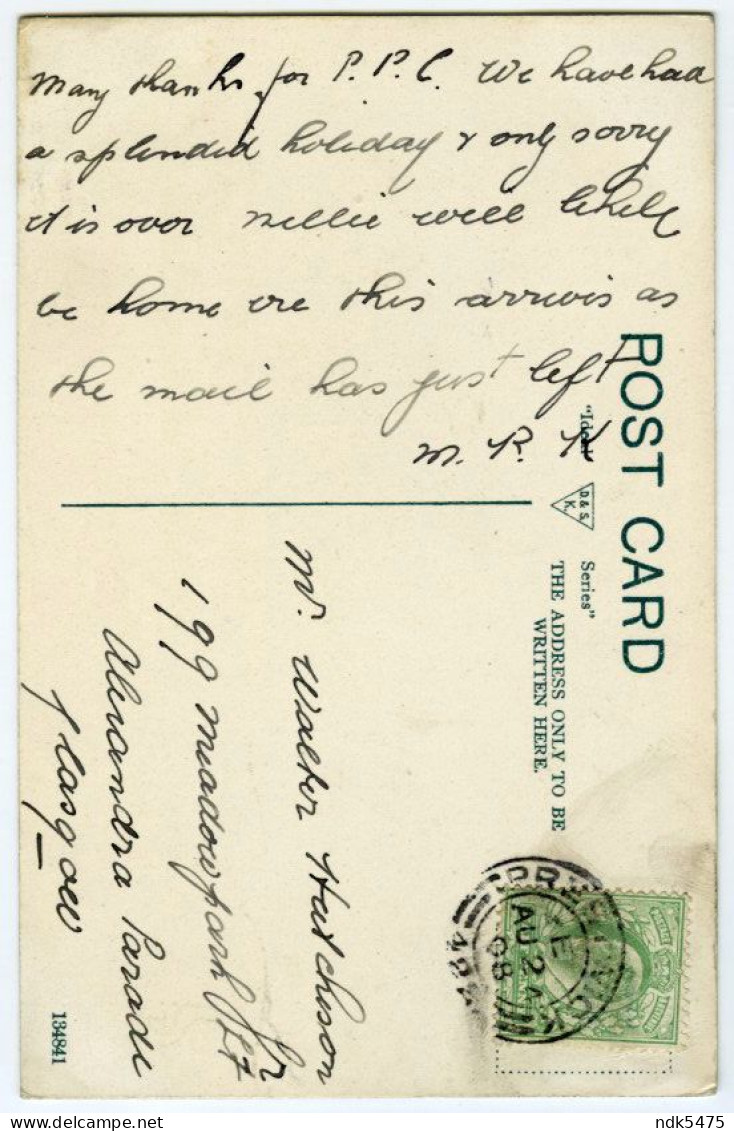 Many thanks for P.P.C. We have had
a splendid holiday & only sorry
it is over Nellie will likely
be home ere this arrives as
the mail has just left
M. R. K
POST CARD
"Ideal
D. & S.
K.
Series"
THE ADDRESS ONLY TO BE
WRITTEN HERE.
Mr. Walter Hutchison Jr
199 Meadowpark St
Alexandra Parade
Glasgow
PRESTWICK
E
AU 2
08
134841
delcampe.net
ndk5475